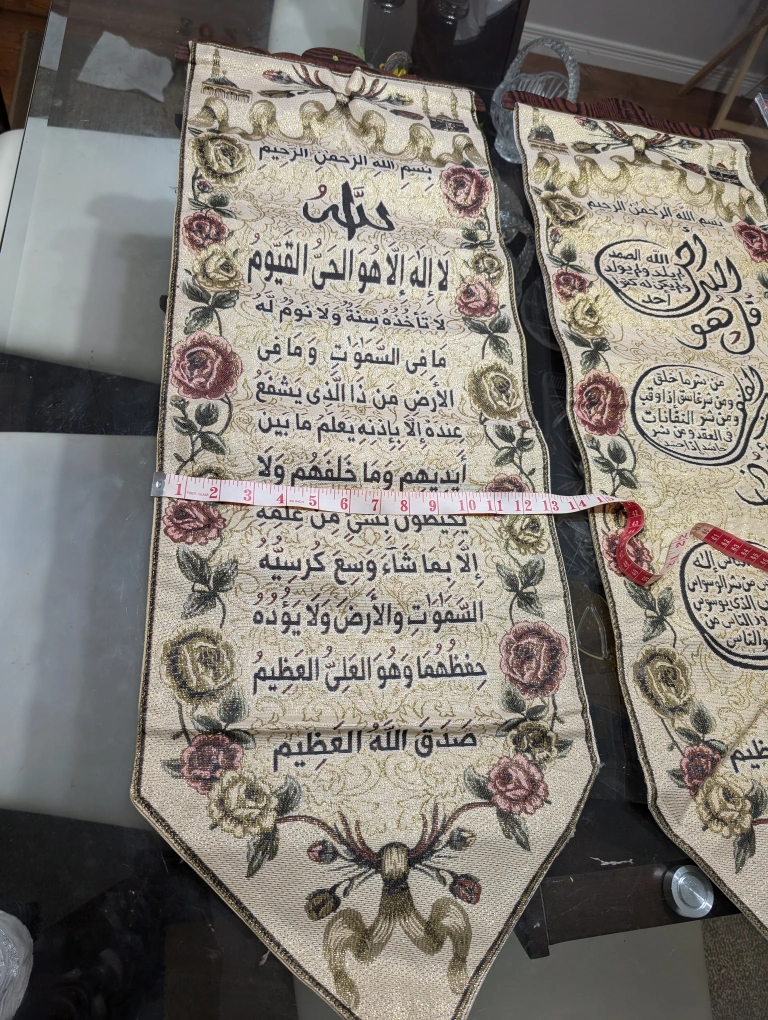 بسم الله الرحمن الرحيم
الله
لا إله إلا هو الحي القيوم
لا تأخذه سنة ولا نوم له
ما في السموت وما في
الأرض من ذا الذي يشفع
عنده إلا بإذنه يعلم ما بين
أيديهم وما خلفهم ولا
يحيطون بشئ من علمه
إلا بما شاء وسع كرسيه
السموت والأرض ولا يؤده
حفظهما وهو العلي العظيم
صدق الله العظيم
1 2 3 4 5 6 7 8 9 10 11 12 13 14
بسم الله الرحمن الرحيم
قل هو الله أحد
الله الصمد
لم يلد ولم يولد
ولم يكن له كفوا
أحد
من شر ما خلق
ومن شر غاسق إذا وقب
ومن شر النفاثات
في العقد ومن شر
حاسد إذا حسد
الناس إله
من شر الوسواس
الذي يوسوس